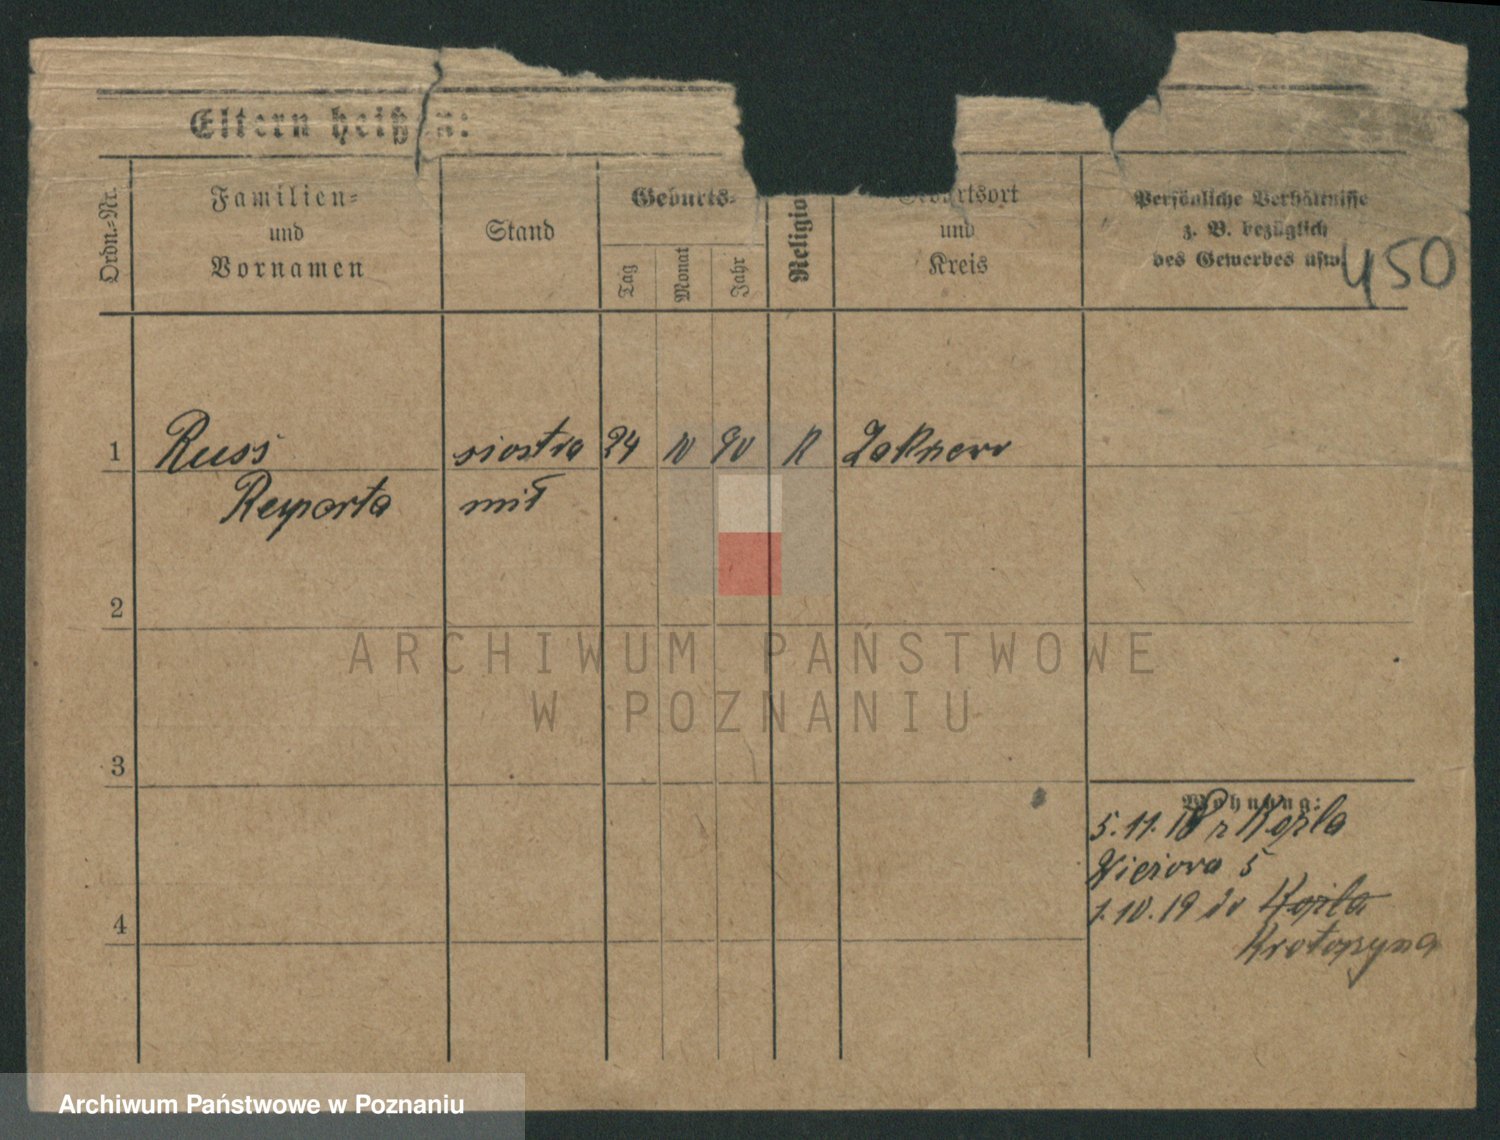 Eltern heißen:
Ordn.-Nr.
Familien-
und
Vornamen
Stand
Geburts-
Tag
Monat
Jahr
Religio
Geburtsort
und
Kreis
Persönliche Verhältnisse
z. B. bezüglich
des Gewerbes usw.
450
1 Russ siostra 24 10 90 K
mił
2
3
4
Wohnung:
5.11.18 z Kozla
5
1.10.19 do Kozla
Krotoszyna
ARCHIWUM PAŃSTWOWE
W POZNANIU
Archiwum Państwowe w Poznaniu